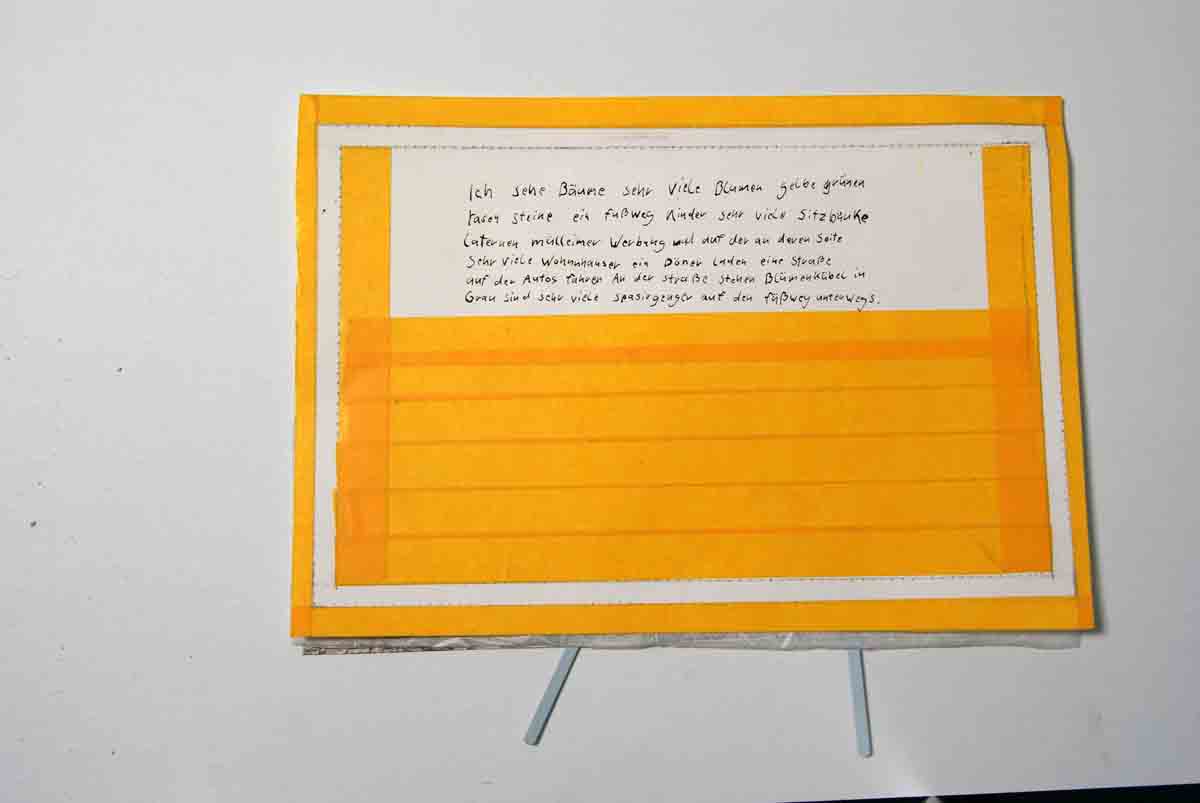 Ich sehe Bäume sehr viele Blumen gelbe grünen
rasen steine ein fußweg Kinder sehr viele Sitzbänke
Laternen mülleimer Werbung und auf der an deren Seite
Sehr viele Wohnnhäuser ein Döner Laden eine Straße
auf der Autos fahren An der straße stehen Blumenkübel in
Grau sind sehr viele spasirgenger auf den fußweg unterwegs.